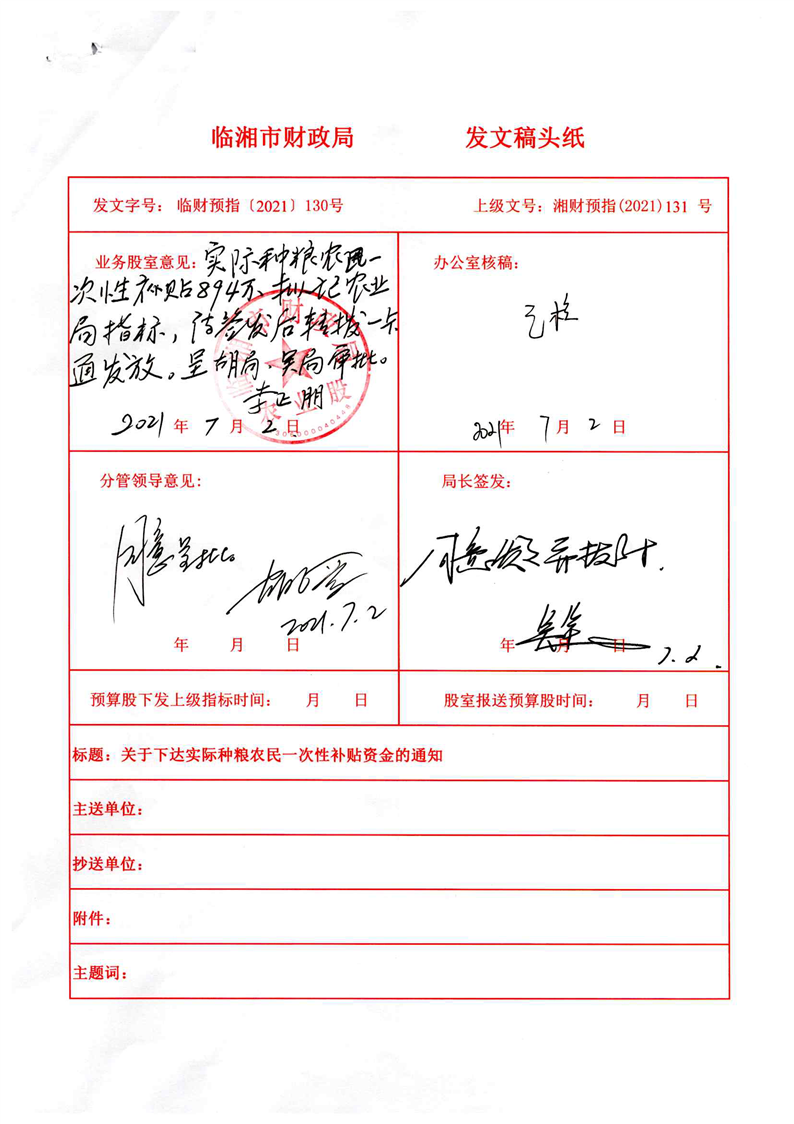 临湘市财政局 发文稿头纸
发文字号： 临财预指〔2021〕130号 上级文号：湘财预指(2021)131 号
业务股室意见：实际种粮农民一
次性补贴894万,拟记农业
局指标，待签发后转拨一卡
通发放。呈胡局、吴局审批。
李正朋
2021 年 7 月 2 日
财
农业股
办公室核稿：
已核
2021年 7月 2 日
分管领导意见：
同意呈批。
2021.7.2
年 月 日
局长签发：
同意
年 月 日
7.2.
预算股下发上级指标时间： 月 日
股室报送预算股时间： 月 日
标题：关于下达实际种粮农民一次性补贴资金的通知
主送单位：
抄送单位：
附件：
主题词：